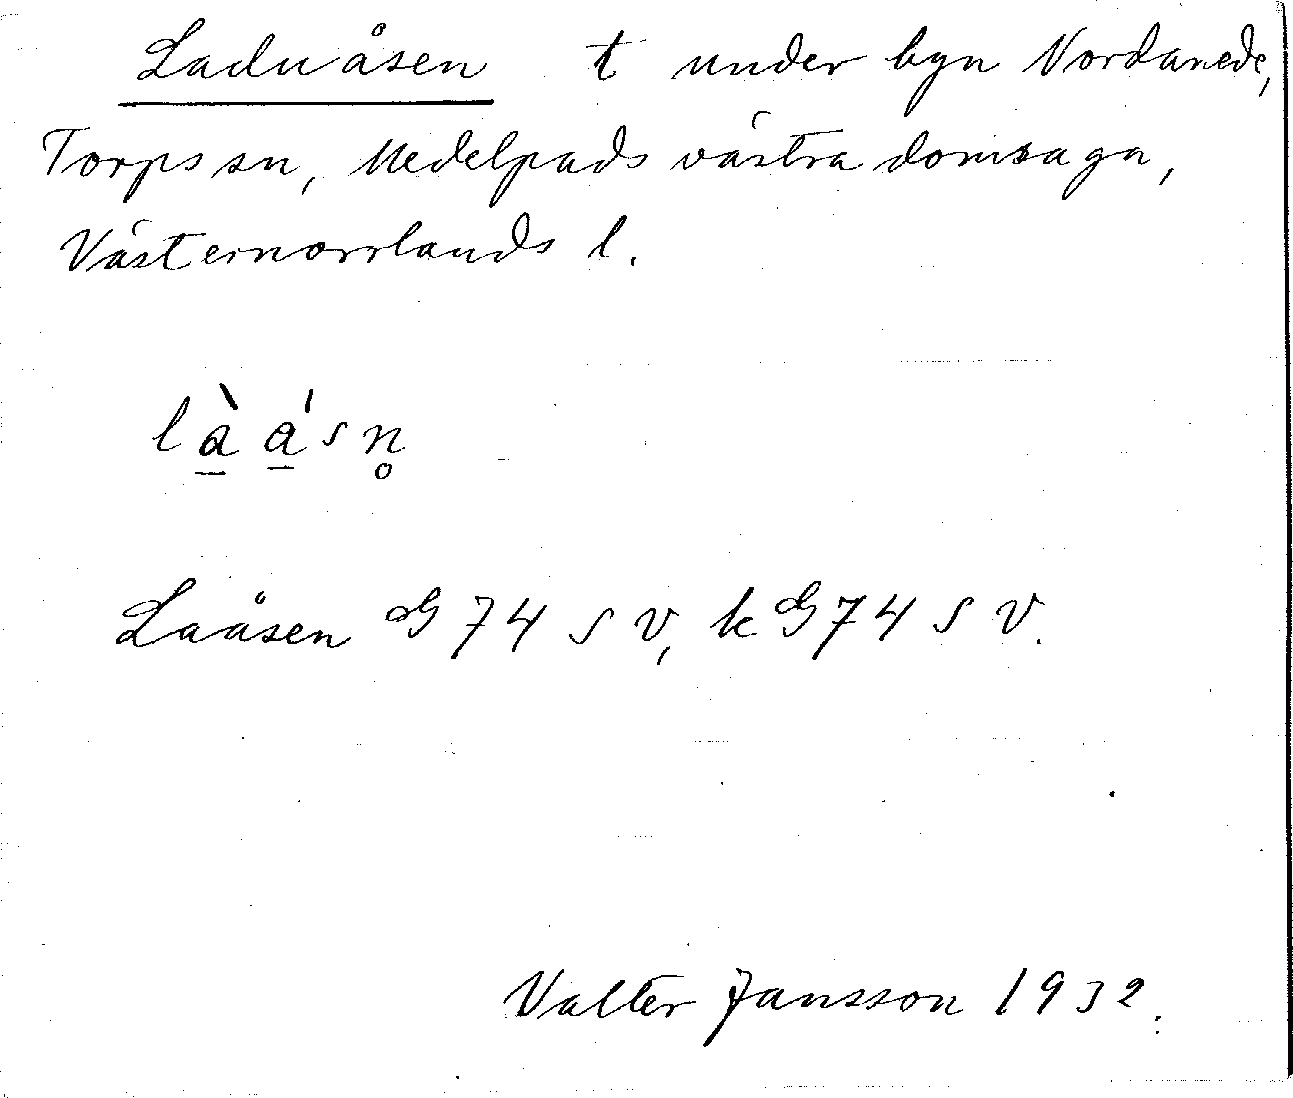 Laduåsen t under byn Nordanede,
Torps sn, Medelpads västra domsaga,
Västernorrlands l.
là̱ á̱sn̥
Laåsen G 74 SV, k G 74 SV.
Valter Jansson 1932.